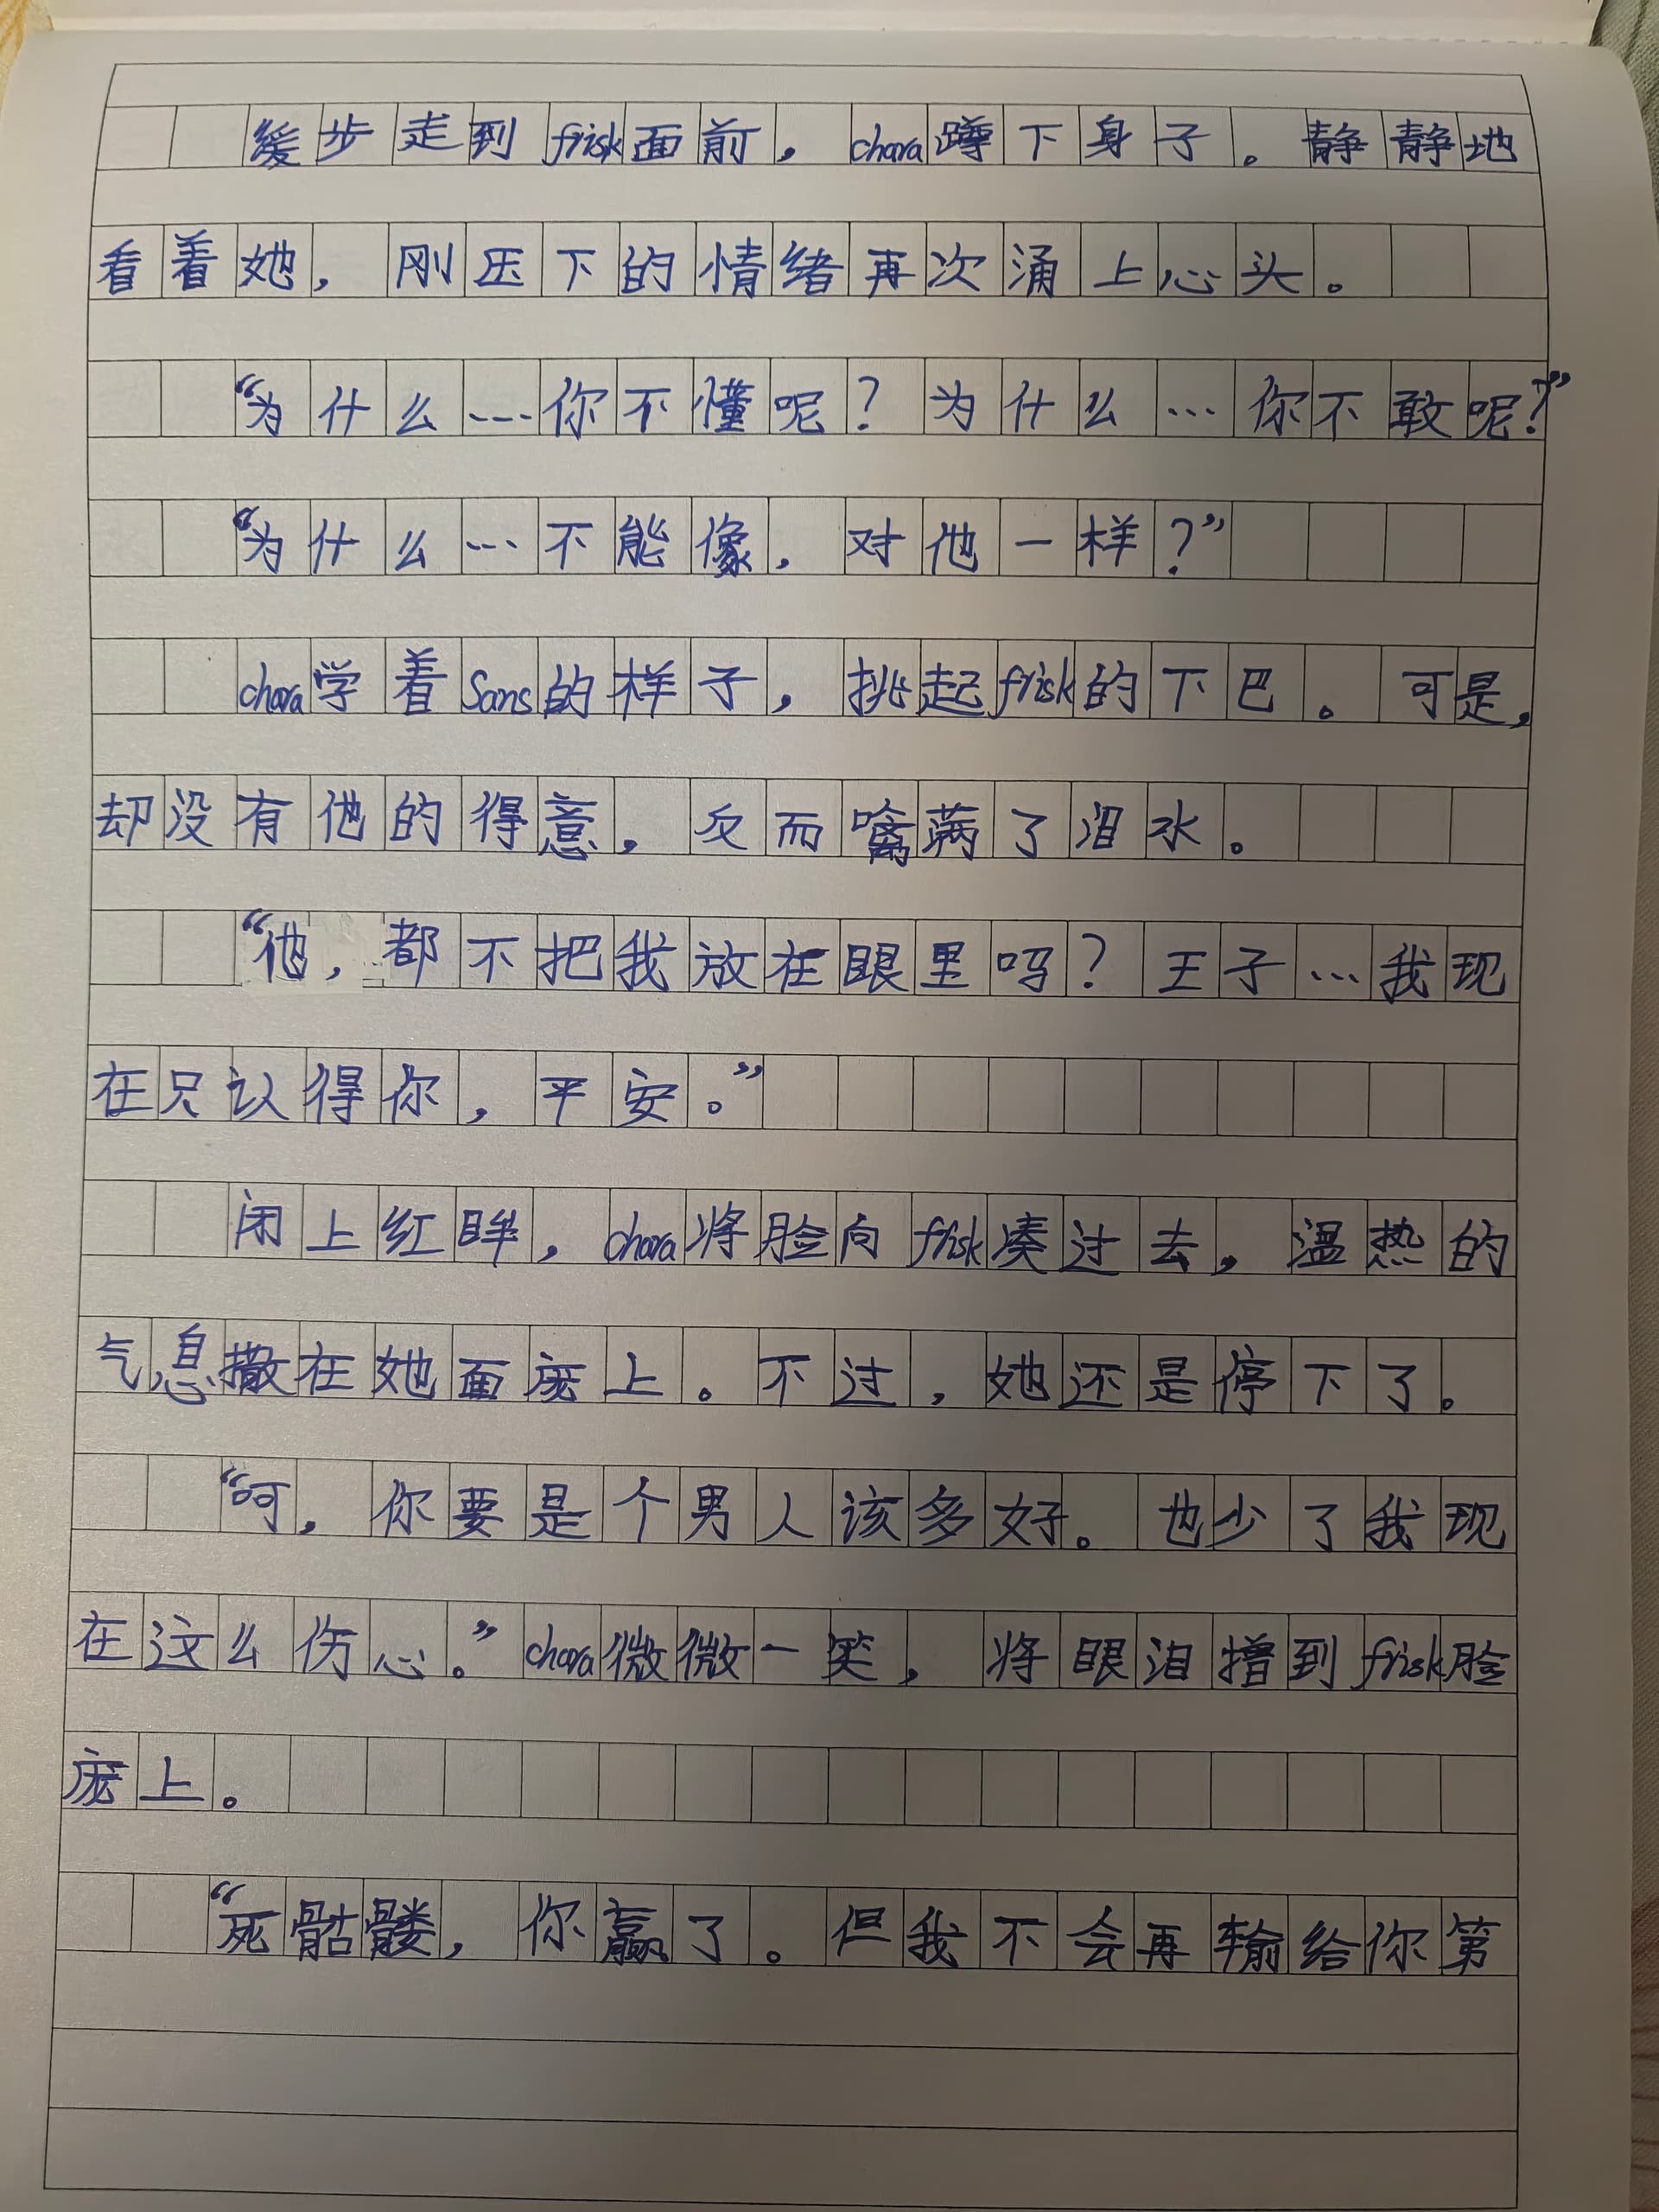 缓步走到frisk面前，chara蹲下身子。静静地
看着她，刚压下的情绪再次涌上心头。
“为什么…你不懂呢？为什么…你不敢呢？”
“为什么…不能像，对他一样？”
chara学着Sans的样子，挑起frisk的下巴。可是，
却没有他的得意，反而噙满了泪水。
“他，都不把我放在眼里吗？王子…我现
在只认得你，平安。”
闭上红眸，chara将脸向frisk凑过去，温热的
气息撒在她面庞上。不过，她还是停下了。
“呵，你要是个男人该多好。也少了我现
在这么伤心。”chara微微一笑，将眼泪擦到frisk脸
庞上。
“死骷髅，你赢了。但我不会再输给你第